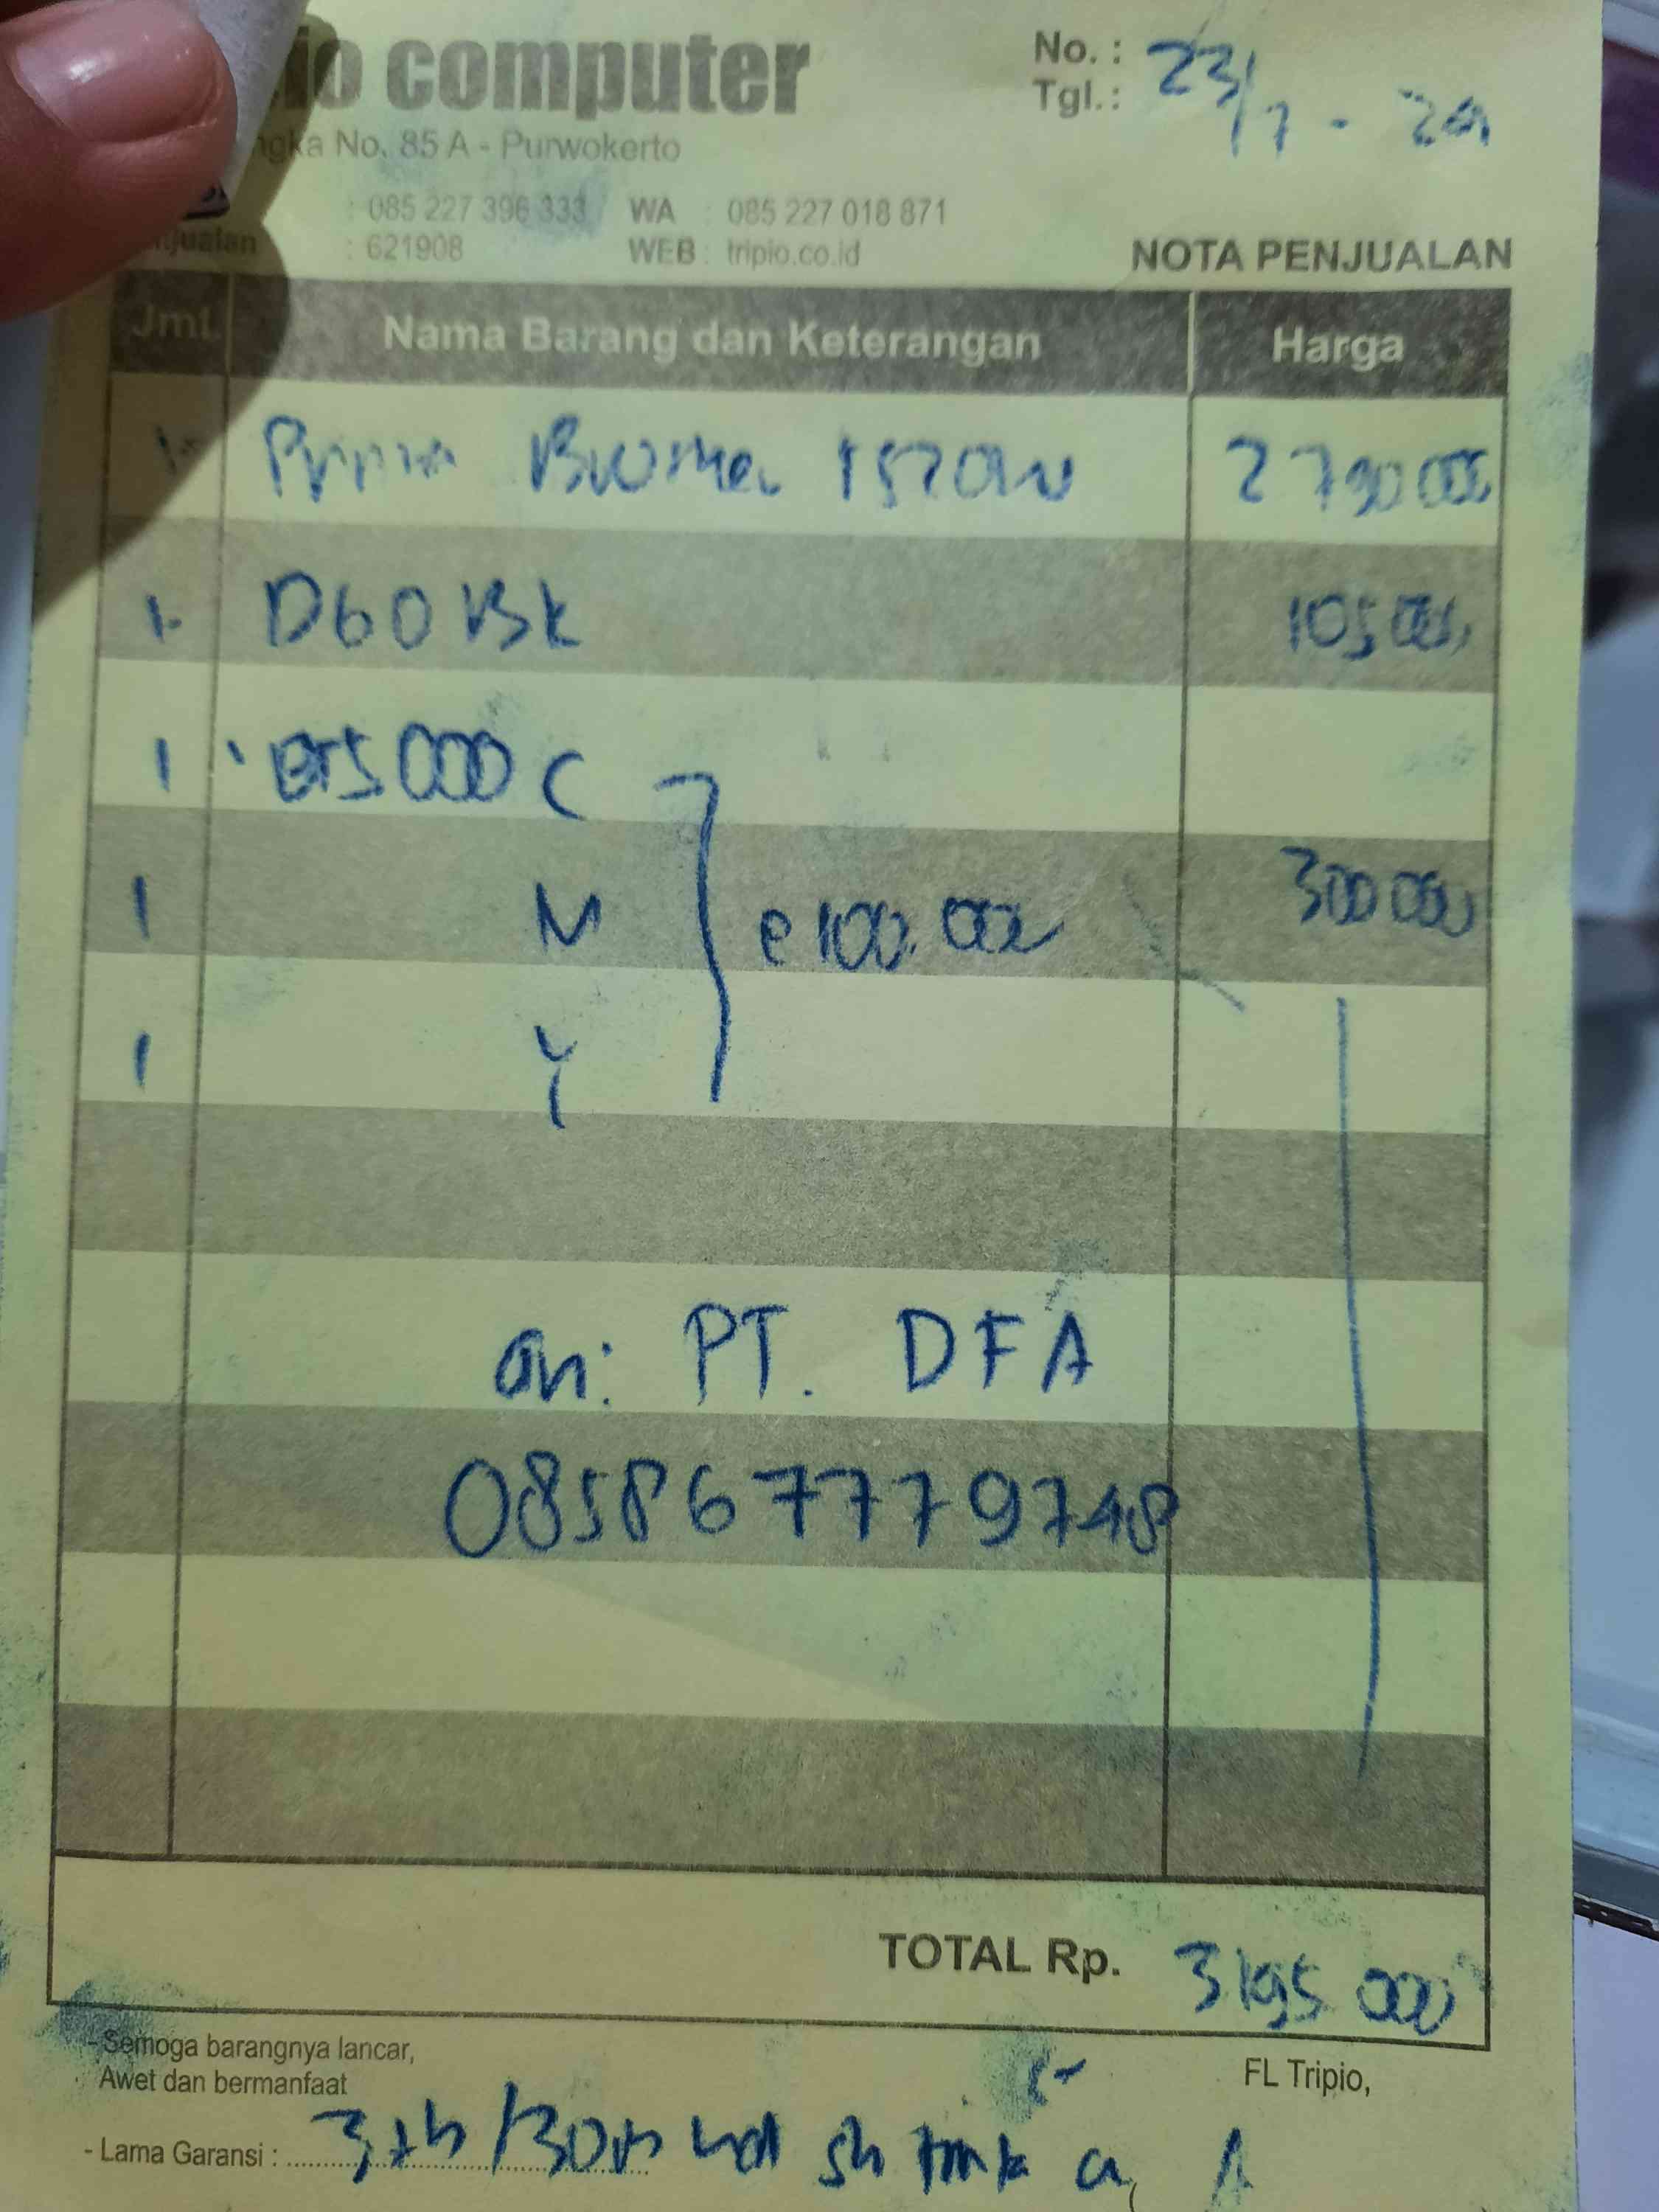 computer
No. :
Tgl.: 23/7 - 24
No. 85 A - Purwokerto
: 085 227 396 333 WA : 085 227 018 871
: 621908 WEB : tripio.co.id
NOTA PENJUALAN
Jml. Nama Barang dan Keterangan Harga
1- Brother T520W 2790000
1. D60BK 105000
1 BT5000 C
1 M @ 100.000 300000
1 Y
an: PT. DFA
085867779748
TOTAL Rp. 3195 000
- Semoga barangnya lancar,
Awet dan bermanfaat
FL Tripio,
- Lama Garansi : 3th/30rb